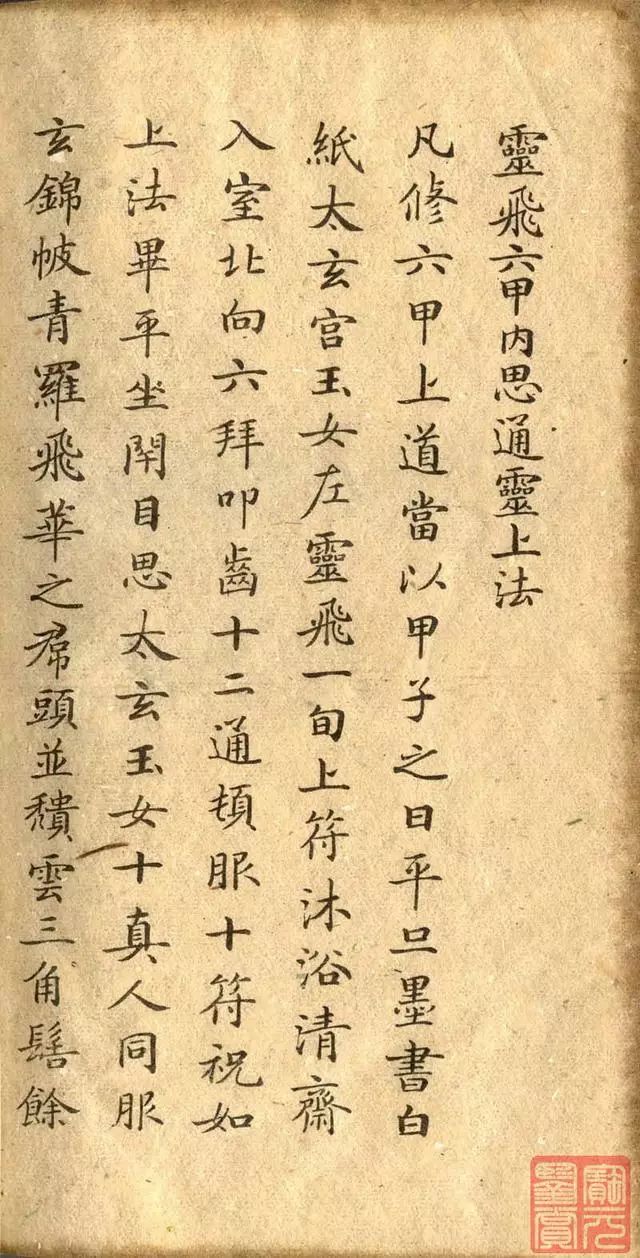 靈飛六甲内思通靈上法
凡修六甲上道當以甲子之日平旦墨書白
紙太玄宫玉女左靈飛一旬上符沐浴清齋
入室北向六拜叩齒十二通頓服十符祝如
上法畢平坐閇目思太玄玉女十真人同服
玄錦帔青羅飛華之帬頭並穨雲三角髻餘
寶元
鑒賞